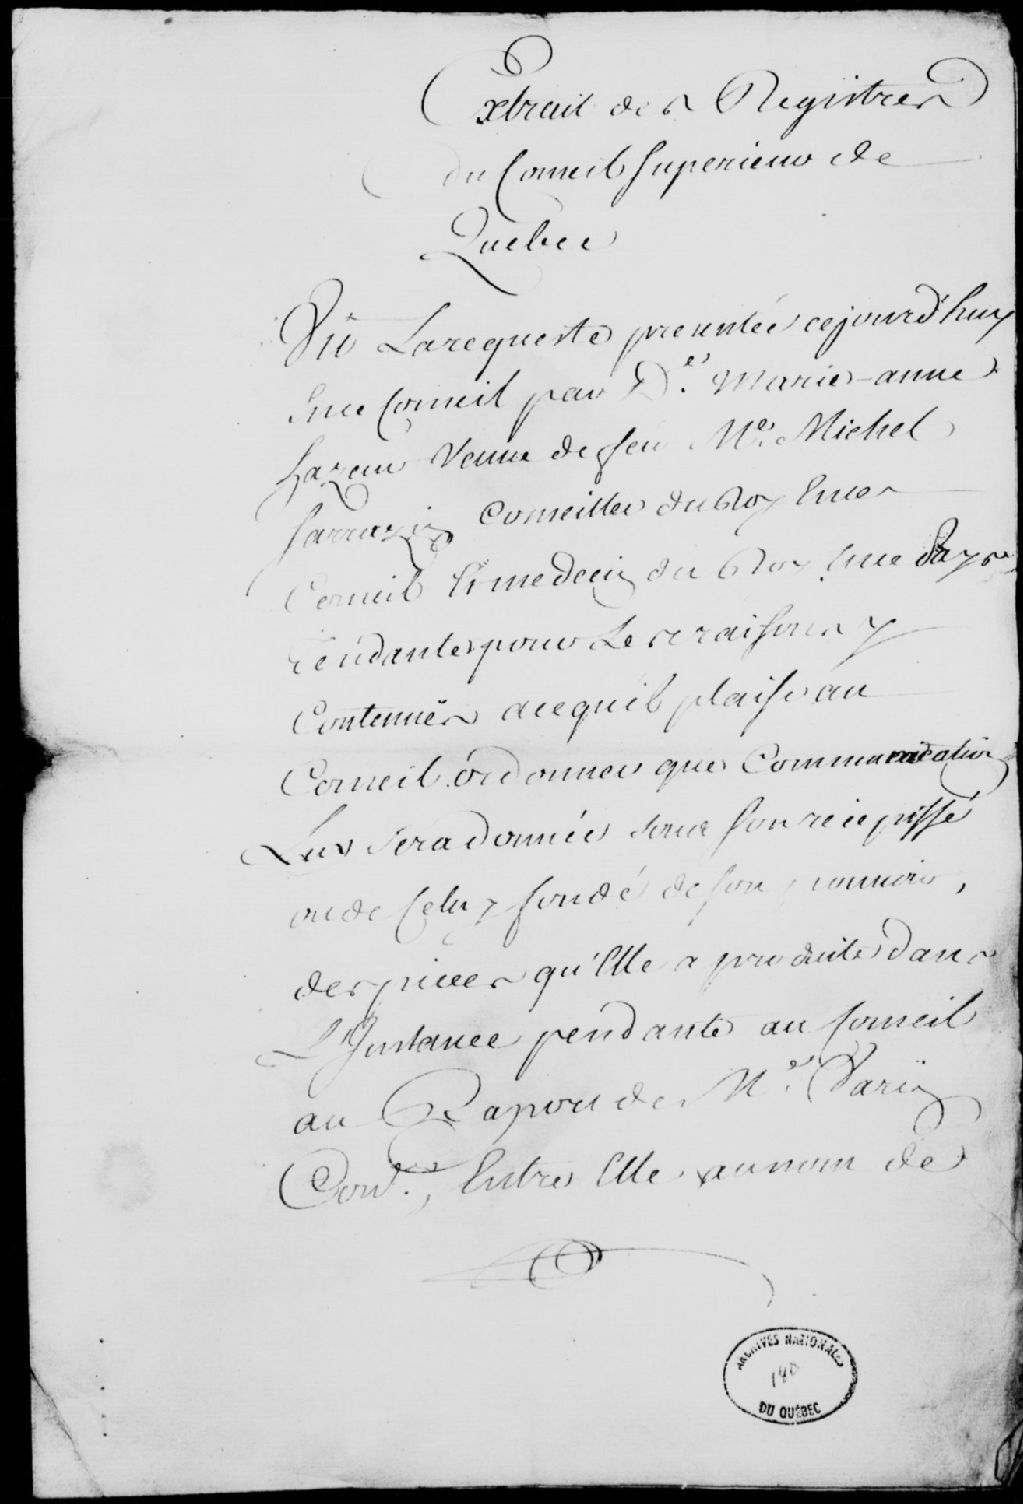 Extrait des Registres
du Conseil superieur de
Quebec
Vû La requeste presentée cejourd'huy
En ce Conseil par D.e Marie-anne
hazeur Veuve de feu Me. Michel
sarrazin Conseiller du Roy En ce
Conseil Et medecin du Roy En ce Pays
Tendante pour Les raisons y
Contenües a ce qu'il plaise au
Conseil ordonner que Communication
Luy sera donnée sous son recepissé
ou de Celuy fondé de son pouvoir,
des pieces qu'Elle a produite dans
L'Instance pendante au Conseil
au Raport de Me. Varin
Con.er, Entre Elle au nom de
ARCHIVES NATIONALES
140
DU QUÉBEC